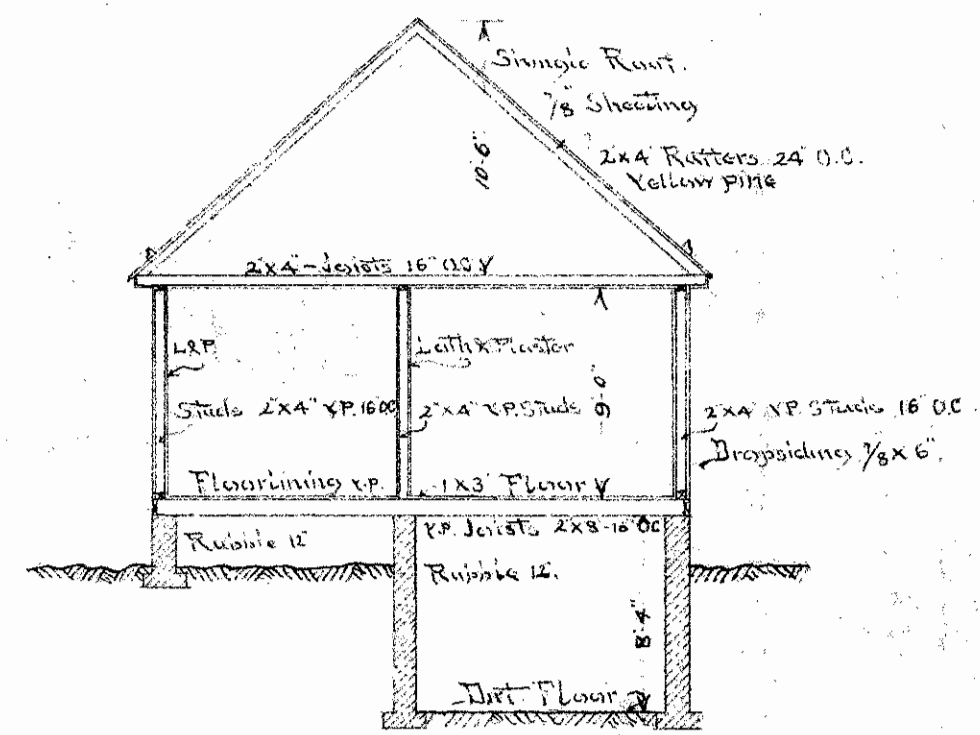 Shingle Roof.
7/8" Sheeting
10'-6"
2"x4" Rafters 24" O.C.
Yellow pine
2"x4"-Joists 16" O.C.
L&P.
Lath & Plaster
9'-0"
Studs 2"x4" Y.P. 16"OC
2"x4" Y.P. Studs
2"x4" Y.P. Studs 16" O.C.
Dropsiding 7/8 x 6".
Floorlining Y.P.
1 x 3" Floor
Y.P. Joists 2x8-16"OC
Rubble 12"
Rubble 12".
8'-4"
Dirt Floor